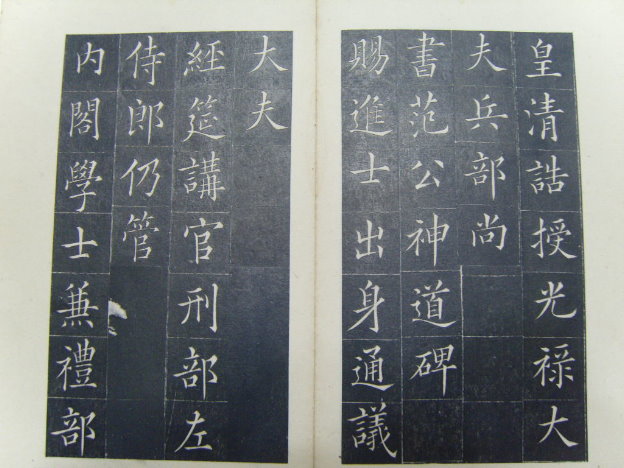 皇清誥授光祿大
夫兵部尚
書范公神道碑
賜進士出身通議
大夫
經筵講官刑部左
侍郎仍管
內閣學士兼禮部